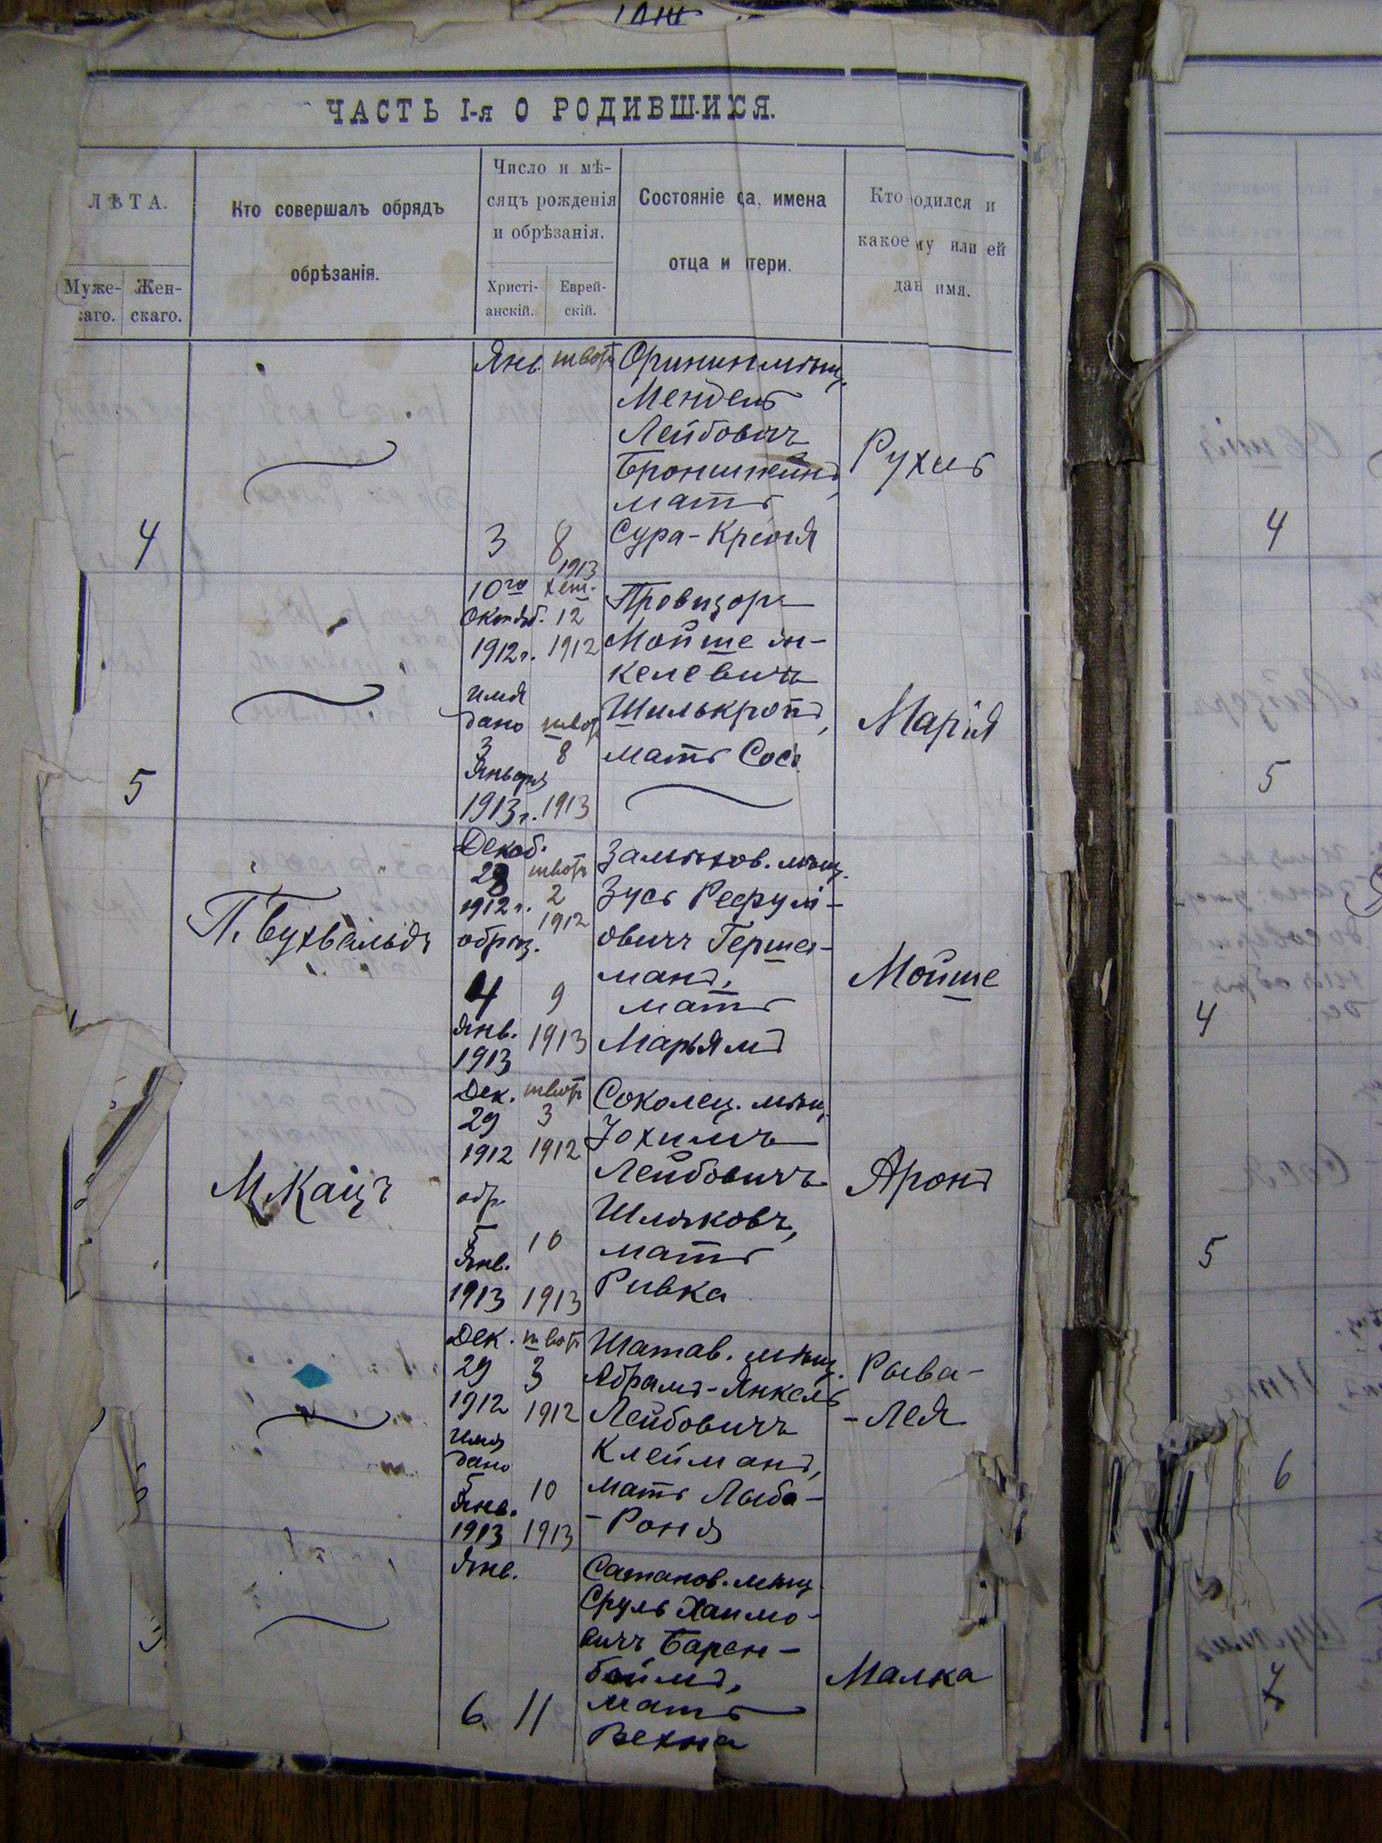 ЧАСТЬ I-я О РОДИВШИХСЯ.
ЛѢТА.
Муже-
каго.
Жен-
скаго.
Кто совершалъ обрядъ
обрѣзанія.
Число и мѣ-
сяцъ рожденія
и обрѣзанія.
Христі-
анскій.
Еврей-
скій.
Состояніе ца, имена
отца и тери.
Кто одился и
какое му или ей
дан имя.
4
Янв.
3
твот
8
1913
Оринин мѣщ.
Мендель
Лейбовичъ
Бронштейнъ,
мать
Сура-Крейня
Рухль
5
10го
Октяб.
1912г.
имя
дано
3
Января
1913г.
хеш.
12
1912
твот
8
1913
Провизоръ
Мойше Ян-
келевичъ
Шилькротъ,
мать Сося
Марія
П. Бухвальдъ
Декаб.
28
1912г.
обрѣз.
4
Янв.
1913
твотъ
2
1912
9
1913
Замѣхов. мѣщ.
Зусь Рефул-
овичъ Герша-
манъ,
мать
Марьямъ
Мойше
М. Кацъ
Дек.
29
1912
обр.
5
Янв.
1913
твот
3
1912
10
1913
Соколец. мѣщ.
Іохимъ
Лейбовичъ
Шляковъ,
мать
Ривка
Аронъ
Дек.
29
1912
имя
дано
5
Янв.
1913
твот
3
1912
10
1913
Шатав. мѣщ.
Абрамъ-Янкель
Лейбовичъ
Клейманъ,
мать Лыба-
-Роня
Рыва-
-Лея
Янв.
6.
11
Сатанов. мѣщ.
Сруль Хаимо-
вичъ Барен-
боймъ,
мать
Вехна
Малка
4
5
4
5
6
7